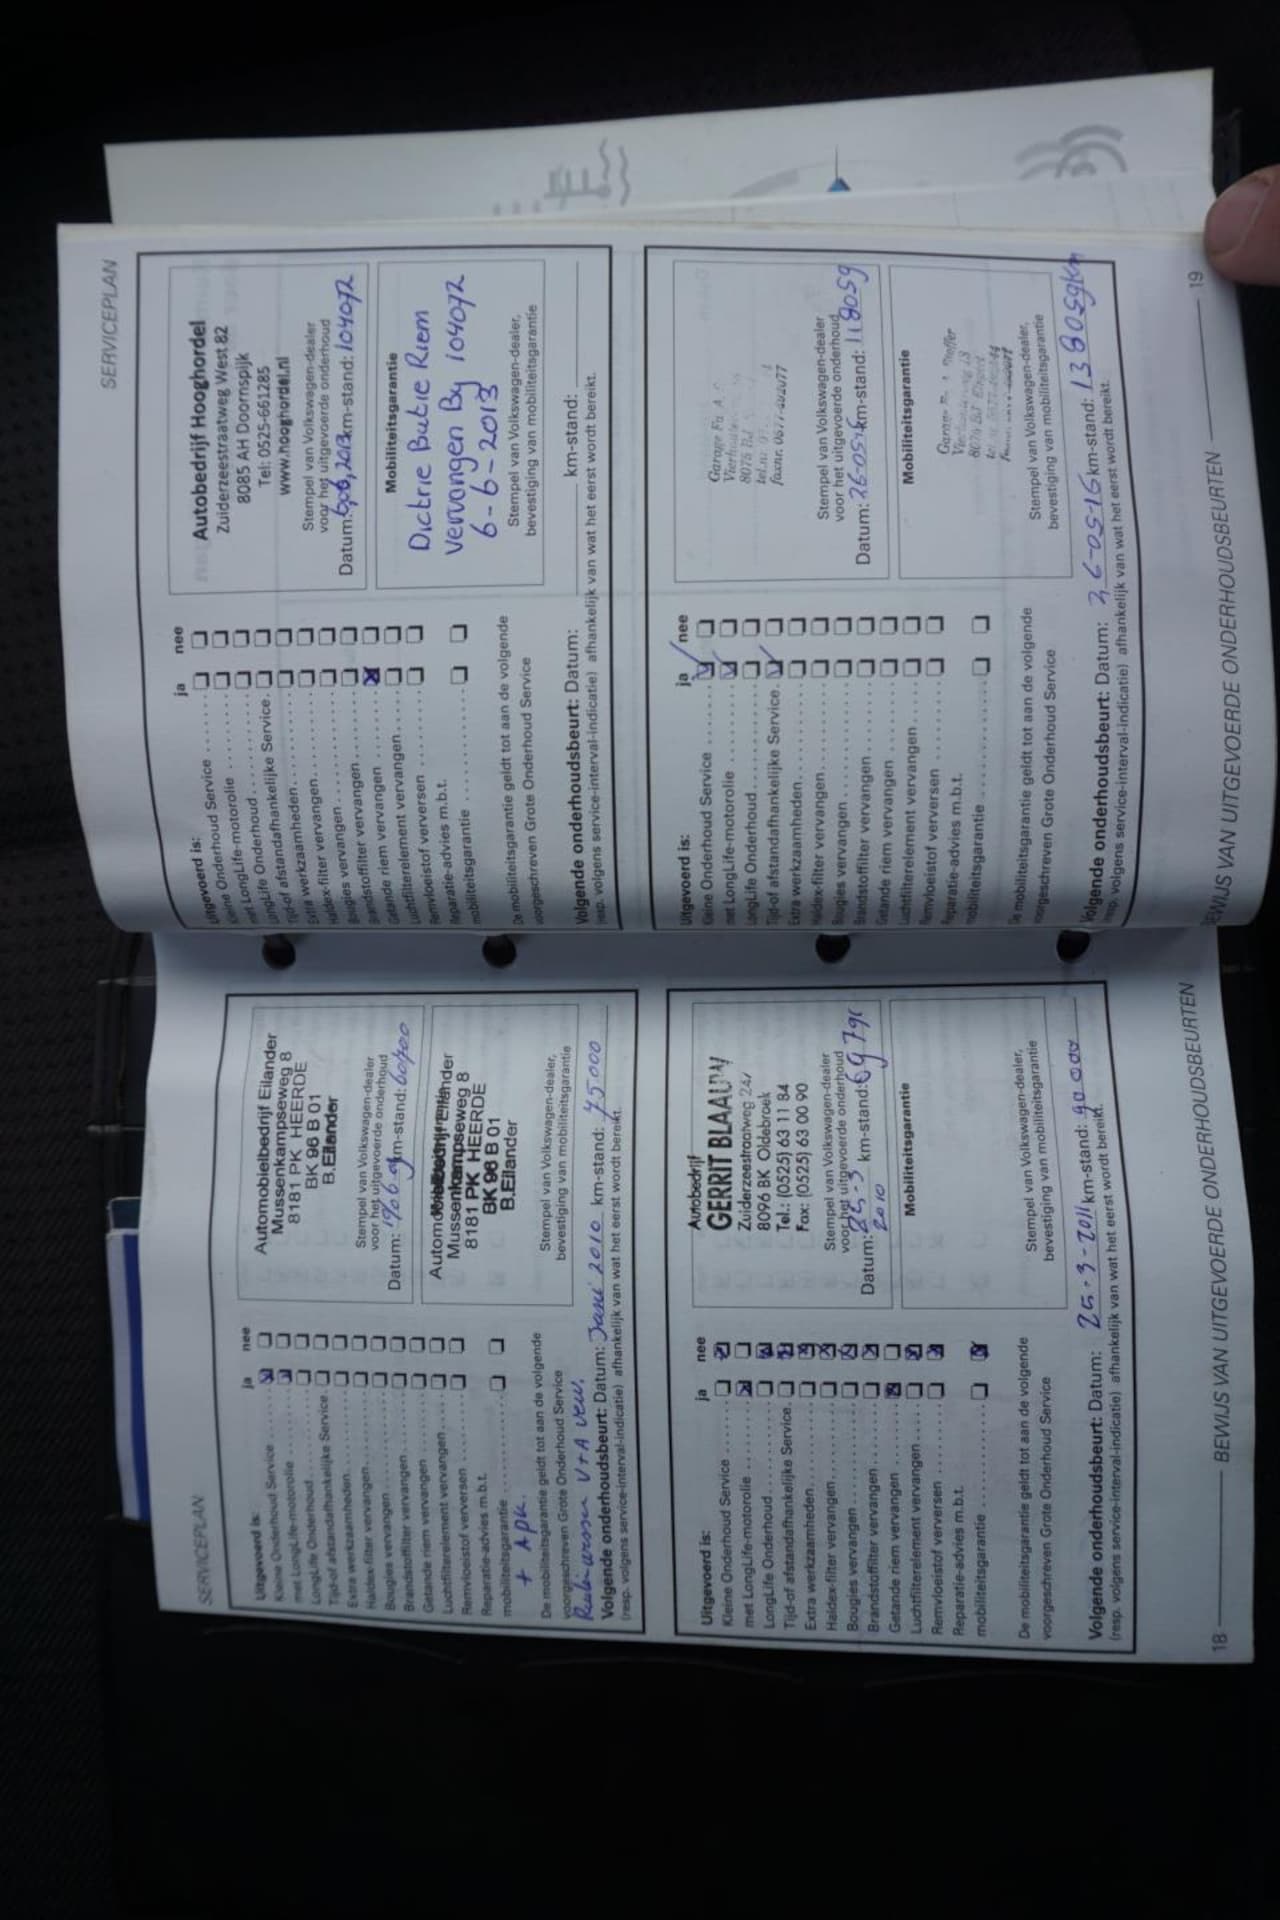 SERVICEPLAN
Uitgevoerd is: ja nee
Kleine Onderhoud Service
met LongLife-motorolie
LongLife Onderhoud
Tijd-of afstandafhankelijke Service
Extra werkzaamheden
Haldex-filter vervangen
Bougies vervangen
Brandstoffilter vervangen
Getande riem vervangen
Luchtfilterelement vervangen
Remvloeistof verversen
Reparatie-advies m.b.t.
mobiliteitsgarantie
+ APK.
De mobiliteitsgarantie geldt tot aan de volgende
voorgeschreven Grote Onderhoud Service
V+A
Automobielbedrijf Eilander
Mussenkampseweg 8
8181 PK HEERDE
BK 96 B 01
B.Eilander
Stempel van Volkswagen-dealer
voor het uitgevoerde onderhoud
Datum: km-stand:
Mussenkampseweg 8
8181 PK HEERDE
BK 96 B 01
B.Eilander
Stempel van Volkswagen-dealer,
bevestiging van mobiliteitsgarantie
Volgende onderhoudsbeurt: Datum: 2010 km-stand: 75000
(resp. volgens service-interval-indicatie) afhankelijk van wat het eerst wordt bereikt.
Uitgevoerd is: ja nee
Kleine Onderhoud Service
met LongLife-motorolie
LongLife Onderhoud
Tijd-of afstandafhankelijke Service
Extra werkzaamheden
Haldex-filter vervangen
Bougies vervangen
Brandstoffilter vervangen
Getande riem vervangen
Luchtfilterelement vervangen
Remvloeistof verversen
Reparatie-advies m.b.t.
mobiliteitsgarantie
De mobiliteitsgarantie geldt tot aan de volgende
voorgeschreven Grote Onderhoud Service
Autobedrijf
GERRIT BLAAUW
Zuiderzeestraatweg
8096 BK Oldebroek
Tel.: (0525) 63 11 84
Fax: (0525) 63 00 90
Stempel van Volkswagen-dealer
voor het uitgevoerde onderhoud
Datum: 25-3 km-stand: 69791
2010
Mobiliteitsgarantie
Stempel van Volkswagen-dealer,
bevestiging van mobiliteitsgarantie
Volgende onderhoudsbeurt: Datum: 25-3-2011 km-stand: 90 000
(resp. volgens service-interval-indicatie) afhankelijk van wat het eerst wordt bereikt.
18 BEWIJS VAN UITGEVOERDE ONDERHOUDSBEURTEN
SERVICEPLAN
Uitgevoerd is: ja nee
Kleine Onderhoud Service
met LongLife-motorolie
LongLife Onderhoud
Tijd-of afstandafhankelijke Service
Extra werkzaamheden
Haldex-filter vervangen
Bougies vervangen
Brandstoffilter vervangen
Getande riem vervangen
Luchtfilterelement vervangen
Remvloeistof verversen
Reparatie-advies m.b.t.
mobiliteitsgarantie
De mobiliteitsgarantie geldt tot aan de volgende
voorgeschreven Grote Onderhoud Service
Autobedrijf Hooghordel
Zuiderzeestraatweg West 82
8085 AH Doornspijk
Tel: 0525-661285
www.hooghordel.nl
Stempel van Volkswagen-dealer
voor het uitgevoerde onderhoud
Datum: km-stand: 104072
Mobiliteitsgarantie
Dictrie Butie Riem
Vervangen By 104072
6-6-2013
Stempel van Volkswagen-dealer,
bevestiging van mobiliteitsgarantie
Volgende onderhoudsbeurt: Datum: km-stand:
(resp. volgens service-interval-indicatie) afhankelijk van wat het eerst wordt bereikt.
Uitgevoerd is: ja nee
Kleine Onderhoud Service
met LongLife-motorolie
LongLife Onderhoud
Tijd-of afstandafhankelijke Service
Extra werkzaamheden
Haldex-filter vervangen
Bougies vervangen
Brandstoffilter vervangen
Getande riem vervangen
Luchtfilterelement vervangen
Remvloeistof verversen
Reparatie-advies m.b.t.
mobiliteitsgarantie
De mobiliteitsgarantie geldt tot aan de volgende
voorgeschreven Grote Onderhoud Service
Garage
8076
tel.nr.
faxnr. 0577-492077
Stempel van Volkswagen-dealer
voor het uitgevoerde onderhoud
Datum: km-stand: 118059
Mobiliteitsgarantie
Garage
Stempel van Volkswagen-dealer,
bevestiging van mobiliteitsgarantie
Volgende onderhoudsbeurt: Datum: 26-05-16 km-stand: 138059km
(resp. volgens service-interval-indicatie) afhankelijk van wat het eerst wordt bereikt.
BEWIJS VAN UITGEVOERDE ONDERHOUDSBEURTEN 19